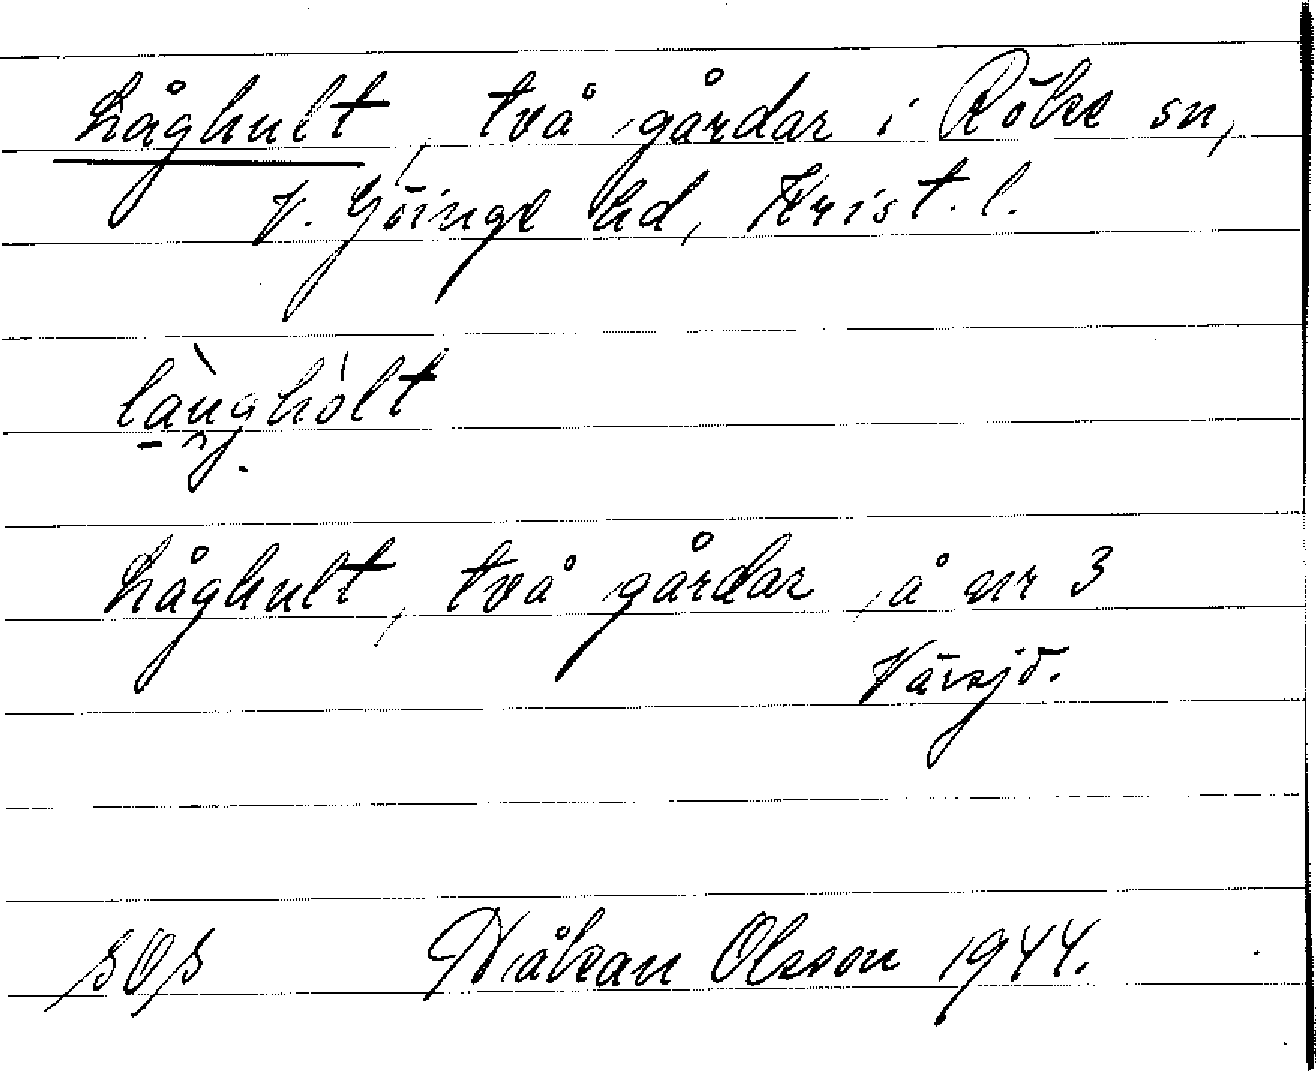 Låghult, två gårdar i Röke sn,
V. Göinge hd, Krist. l.
Låghult, två gårdar, å nr 3
Vävsjö.
SOS Håkan Olsson 1944.